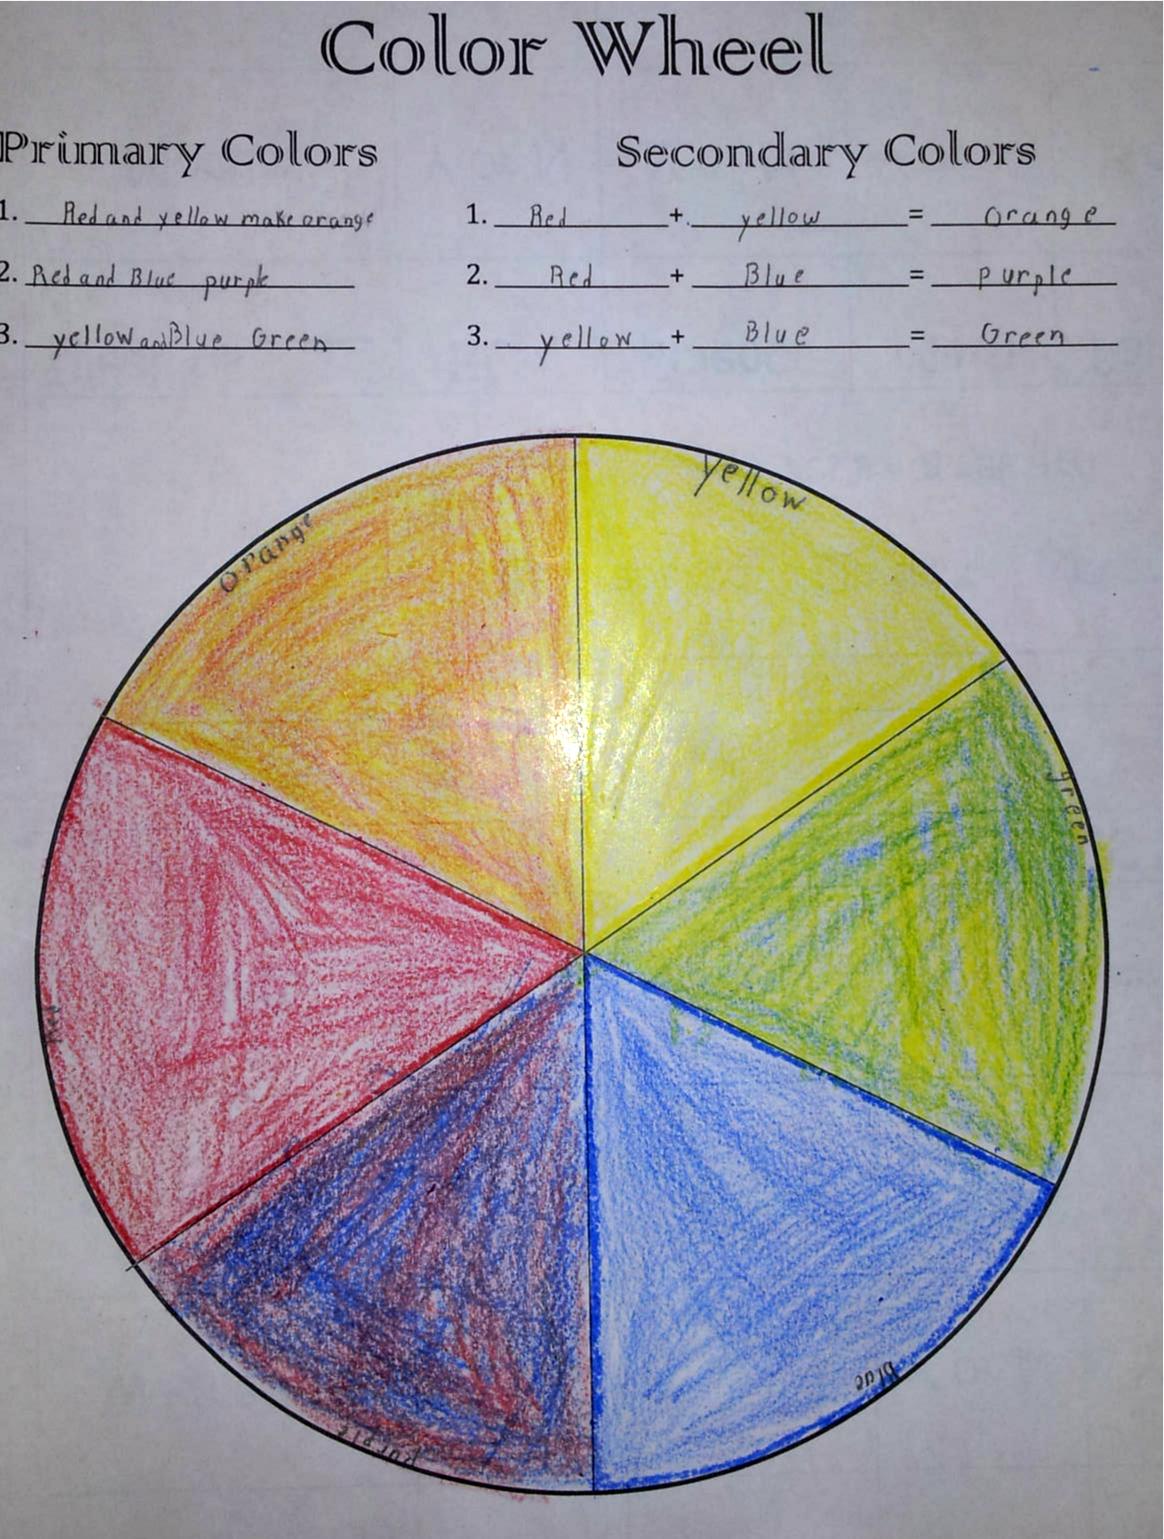 Color Wheel
Primary Colors
1. Red and yellow make orange
2. Red and Blue purple
3. yellow and Blue Green
Secondary Colors
1. Red + yellow = Orange
2. Red + Blue = purple
3. yellow + Blue = Green
yellow
orange
green
Red
blue
Purple